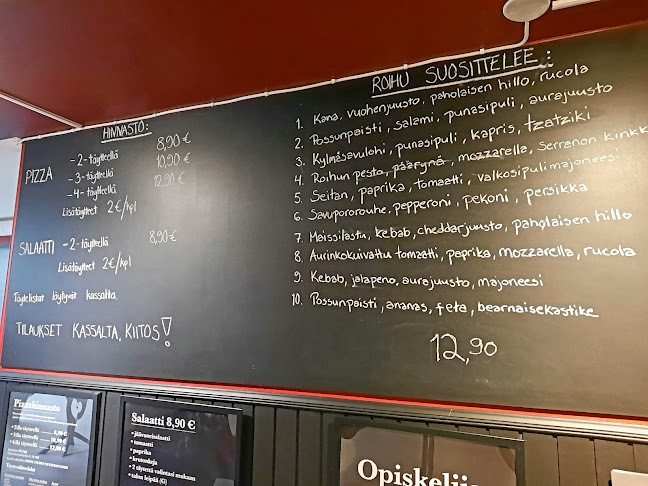 HINNASTO:
PIZZA – 2 - täytteellä 8,90 €
– 3 - täytteellä 10,90 €
– 4 - täytteellä 12,90 €
Lisätäytteet 2€/kpl
SALAATTI – 2 - täytteellä 8,90 €
Lisätäytteet 2€/kpl
Täytelistat löytyvät kassalta.
TILAUKSET KASSALTA, KIITOS!
ROIHU SUOSITTELEE.:
1. Kana, vuohenjuusto, paholaisen hillo, rucola
2. Possunpaisti, salami, punasipuli, aurajuusto
3. Kylmäsavulohi, punasipuli, kapris, tzatziki
4. Roihun pesto, päärynä, mozzarella, Serranon kinkku
5. Seitan, paprika, tomaatti, valkosipulimajoneesi
6. Savupororouhe, pepperoni, pekoni, persikka
7. Meissilastu, kebab, cheddarjuusto, paholaisen hillo
8. Aurinkokuivattu tomaatti, paprika, mozzarella, rucola
9. Kebab, jalapeno, aurejuusto, majoneesi
10. Possunpaisti, ananas, feta, bearnaisekastike
12,90
Pizzahinnasto
• 2:lla täytteellä 8,90 €
• 3:lla täytteellä 10,90 €
• 4:llä täytteellä 12,90 €
Salaatti 8,90 €
• jäävuorisalaatti
• tomaatti
• paprika
• krutonkeja
• 2 täytettä valintasi mukaan
• talon leipää (G)